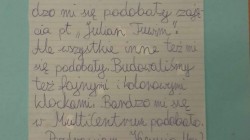 dzo mi się podobały zaję
cia pt „Julian Tuwim".
Ale wszystkie inne też mi
się podobały. Budowaliśmy
też fajnymi i kolorowymi
klockami. Bardzo mi się
w MultiCentrum podobało.